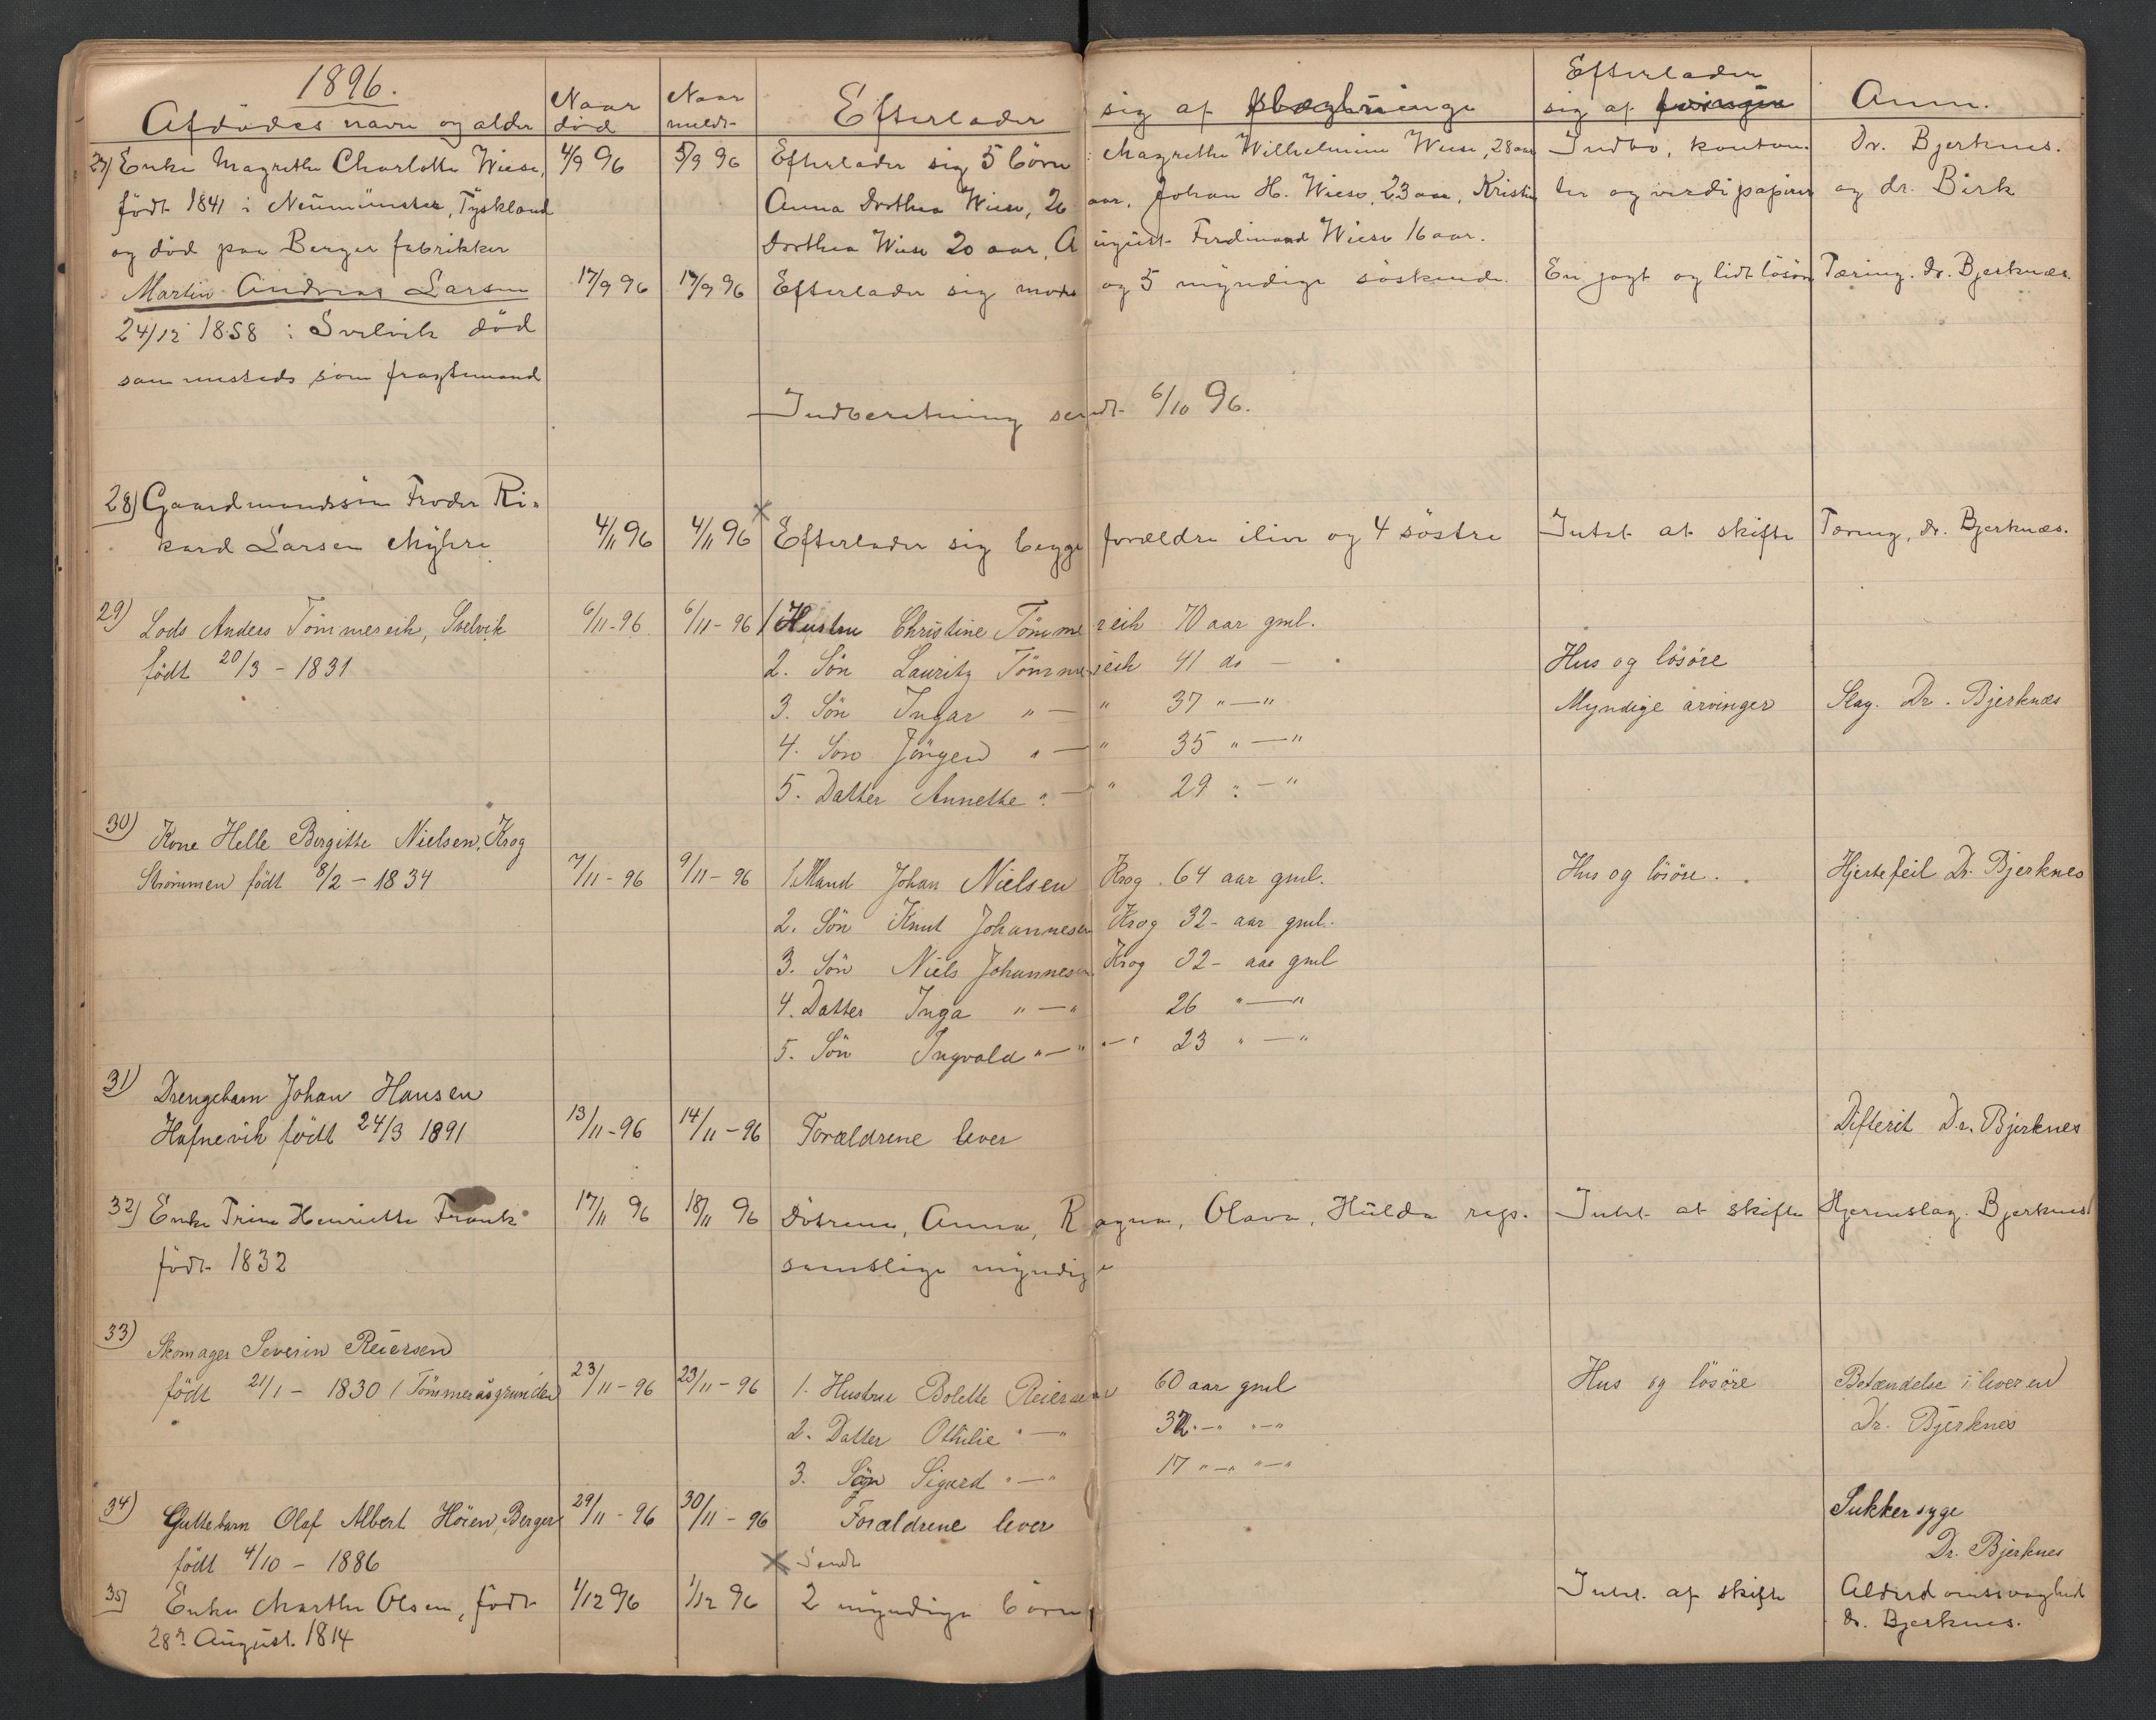 1896.
Afdödes navn og alder
Naar död
Naar meldt
Efterlader sig af slægtninge
Efterlader sig af
Anm.
27) Enke Magrethe Charlotte Wiese, 4/9 96 5/9 96 Efterlader sig 5 börn: Magrethe Wilhelmine Wiese, 28 aar Indbo, kontan- Dr. Bjerknes.
født 1841 i Neumünster, Tyskland Anna Dorthea Wiese, 26 aar, Johan H. Wiese, 23 aar, Kristin ter og værdipapirer og dr. Birk
og död paa Berger fabrikker Dorthea Wiese 20 aar, August Ferdinand Wiese 16 aar.
Martin Andreas Larsen 17/9 96 17/9 96 Efterlader sig moder og 5 myndige söskende. En jagt og lidt lösöre Tæring. dr. Bjerknæs.
24/12 1858 i Svelvik död
sammesteds som fragtemand
Indberetning sendt 6/10 96.
28) Gaardmandssön Fredr Ri-
kard Larsen Myhre 4/11 96 4/11 96 Efterlader sig begge forældre ilive og 4 söstre Intet at skifte Tæring, dr. Bjerknæs.
29) Lods Anders Tömmereik, Svelvik 6/11-96 6/11-96 1 Hustru Christine Tömmereik 70 aar gml.
født 20/3 - 1831 2. Sön Lauritz Tömmereik 41 do - Hus og lösöre
3. Sön Ingar " — " 37 " — " Myndige arvinger Slag. Dr. Bjerknæs
4. Sön Jörgen " — " 35 " — "
5. Datter Annette " — " 29 " — "
30) Kone Helle Birgitte Nielsen, Krog
Strömmen født 8/2 - 1834 7/11-96 9/11-96 1. Mand Johan Nielsen Krog. 64 aar gml. Hus og lösöre. Hjertefeil Dr. Bjerknes
2. Sön Knut Johannesen Krog 32- aar gml.
3. Sön Niels Johannesen Krog 32- aar gml
4. Datter Inga " — " 26 " — "
5. Sön Ingvald " — " " — " 23 " — "
31) Drengebarn Johan Hansen
Hafnevik født 24/3 1891 13/11-96 14/11-96 Forældrene lever Difterit Dr. Bjerknes
32) Enke Trine Henriette Frank 17/11 96 18/11 96 Dötrene, Anna, Ragna, Olava, Hulda reps. Intet at skifte Hjerneslag. Bjerknes
født 1832 samtlige myndige
33) Skomager Severin Reiersen
født 21/1 - 1830 (Tömmeråsgrunden 23/11-96 23/11-96 1. Hustru Bolette Reiersen 60 aar gml Hus og lösöre Betændelse i leveren
2. Datter Othilie " — " 32 " — " " — " Dr. Bjerknes
3. Sön Sigurd " — " 17 " — " " — "
34) Guttebarn Olaf Albert Höien, Berger 29/11-96 30/11-96 Forældrene lever Sukkersyge
født 4/10 - 1886 × Sendt Dr. Bjerknes
35) Enke Marthe Olsen, födt 1/12 96 1/12 96 2 myndige börn Intet at skifte Alderdomssvaghed
28de August 1814 dr. Bjerknes.